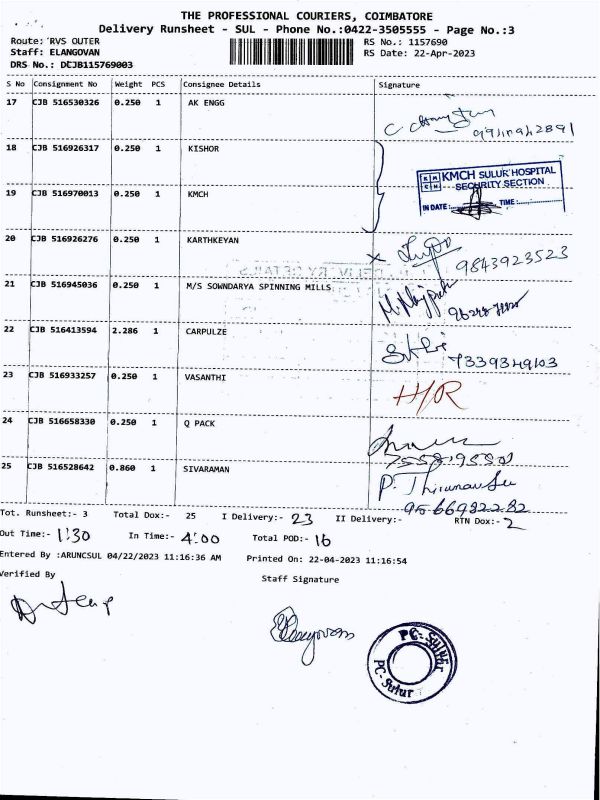 THE PROFESSIONAL COURIERS, COIMBATORE
Delivery Runsheet - SUL - Phone No.:0422-3505555 - Page No.:3
Route: RVS OUTER RS No.: 1157690
Staff: ELANGOVAN RS Date: 22-Apr-2023
DRS No.: DCJB115769003
S No Consignment No Weight PCS Consignee Details Signature
17 CJB 516530326 0.250 1 AK ENGG
18 CJB 516926317 0.250 1 KISHOR
KMCH SULUR HOSPITAL
SECURITY SECTION
IN DATE: TIME:
19 CJB 516970013 0.250 1 KMCH
20 CJB 516926276 0.250 1 KARTHKEYAN
9843923523
DELIVERY DETAILS
21 CJB 516945036 0.250 1 M/S SOWNDARYA SPINNING MILLS
22 CJB 516413594 2.286 1 CARPULZE
7339349103
23 CJB 516933257 0.250 1 VASANTHI H/R
24 CJB 516658330 0.250 1 Q PACK
25 CJB 516528642 0.860 1 SIVARAMAN
9566982282
Tot. Runsheet:- 3 Total Dox:- 25 I Delivery:- 23 II Delivery:- RTN Dox:- 2
Out Time:- 1:30 In Time:- 4:00 Total POD:- 16
Entered By :ARUNCSUL 04/22/2023 11:16:36 AM Printed On: 22-04-2023 11:16:54
Verified By Staff Signature
Elangovan
PC-Sulur
PC-Sulur